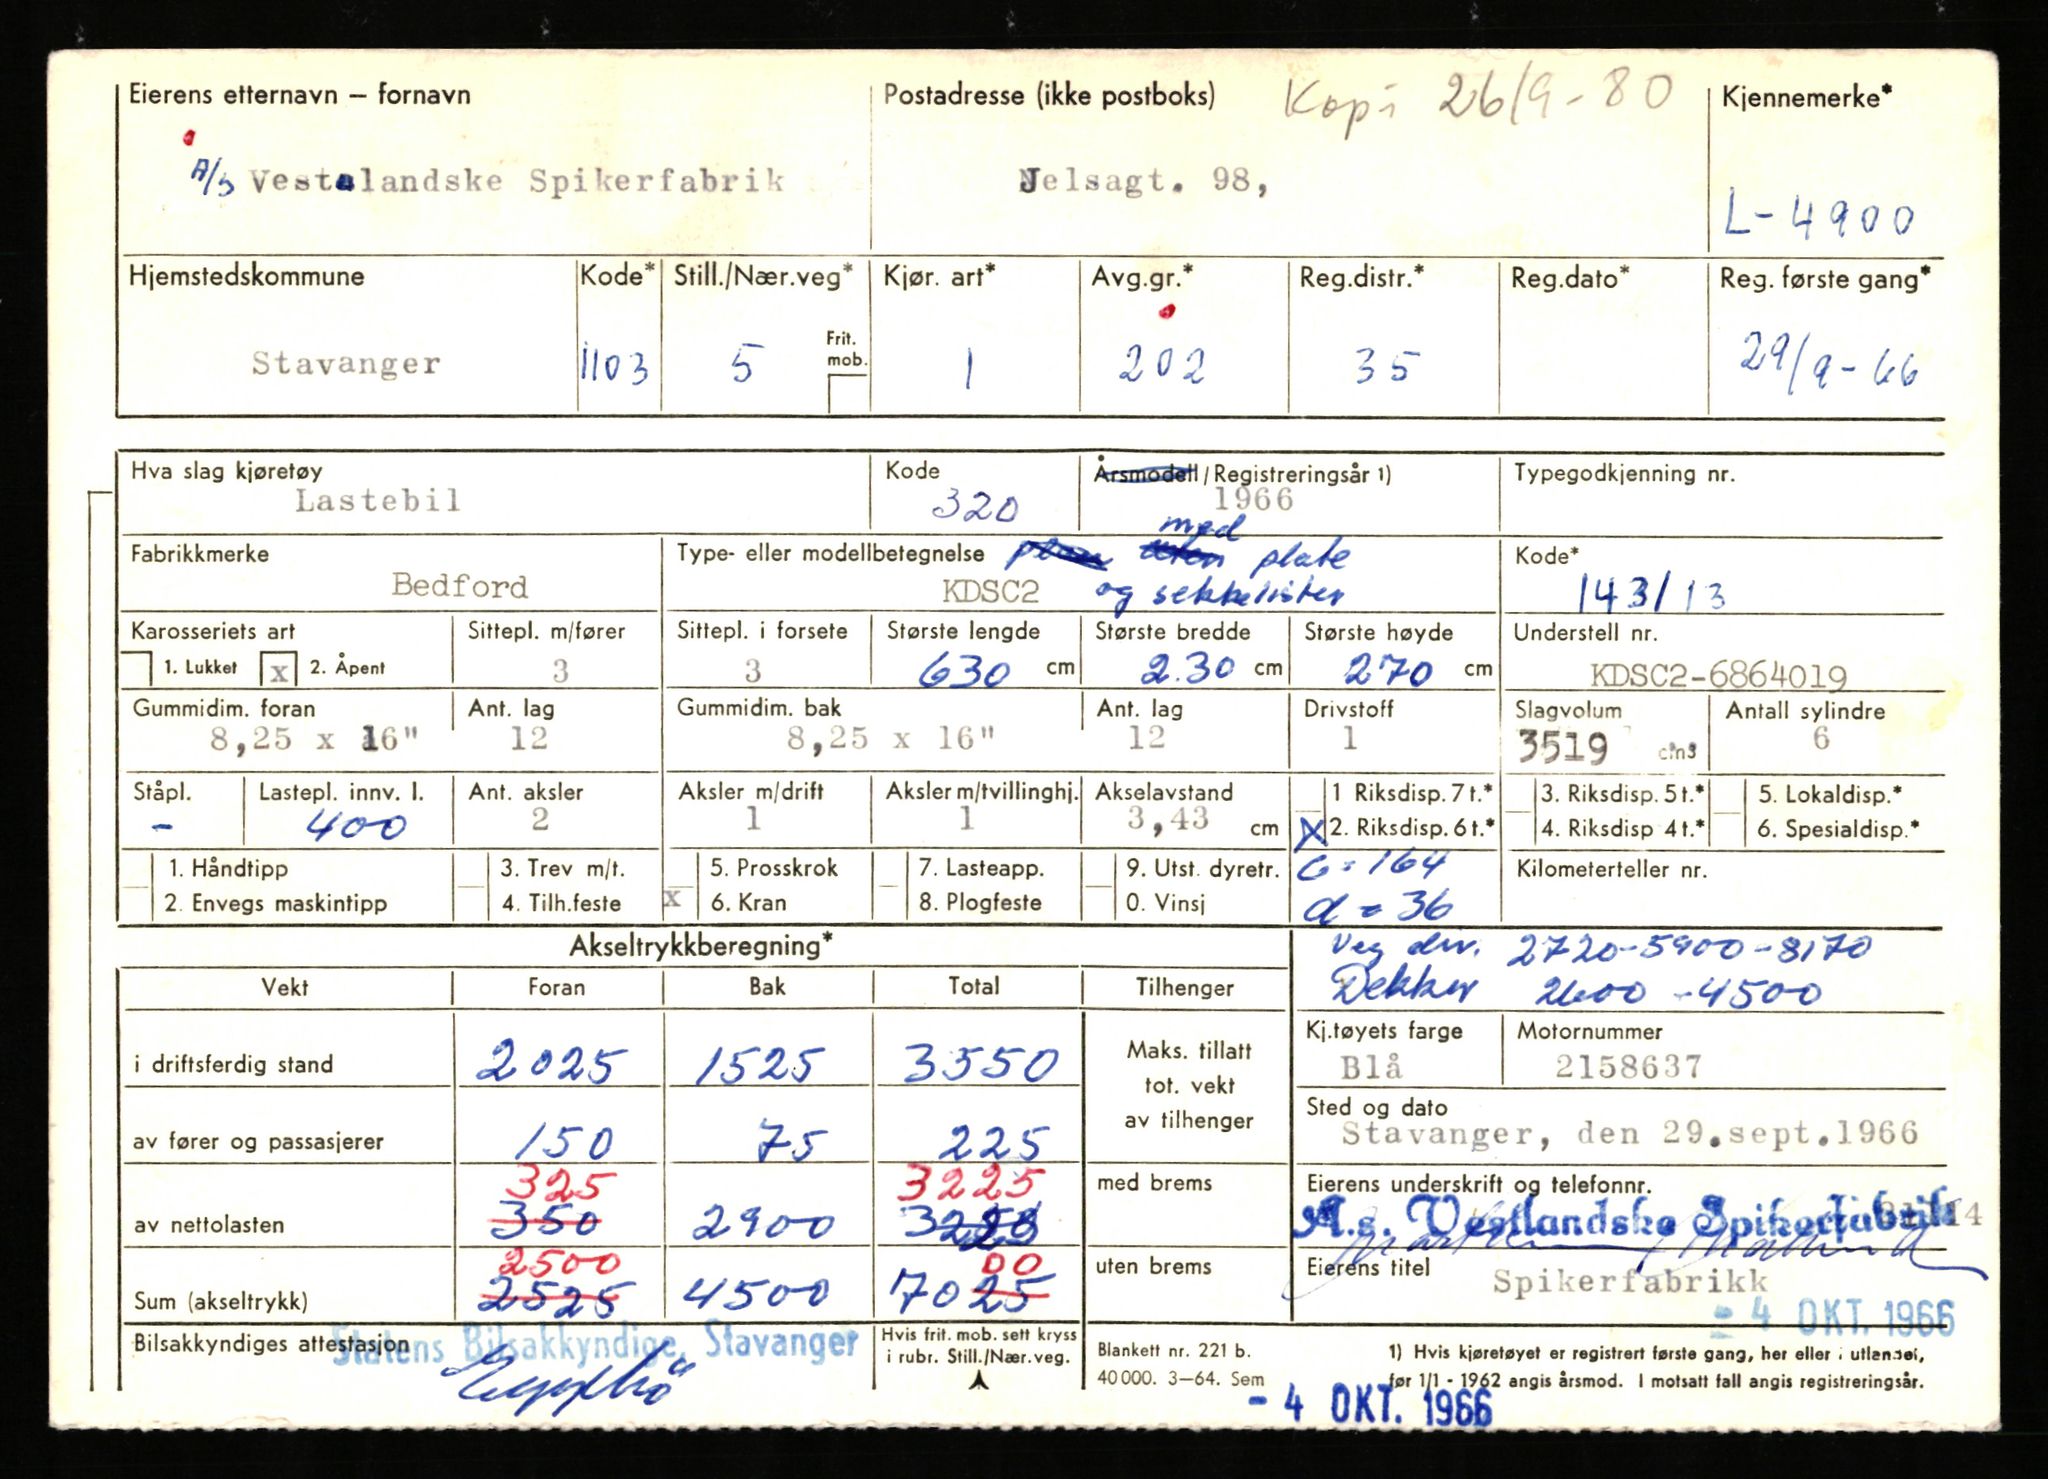 Eierens etternavn – fornavn Postadresse (ikke postboks) Kopi 26/9-80 Kjennemerke*
A/s Vestlandske Spikerfabrik Jelsagt. 98, L-4900
Hjemstedskommune Kode* Still./Nær.veg* Kjør. art* Avg.gr.* Reg.distr.* Reg.dato* Reg. første gang*
Stavanger 1103 5 Frit. mob. 1 202 35 29/9-66
Hva slag kjøretøy Kode Årsmodell/Registreringsår 1) Typegodkjenning nr.
Lastebil 320 1966
Fabrikkmerke Type- eller modellbetegnelse med plate Kode*
Bedford KDSC2 og sekkelister 143/13
Karosseriets art Sittepl. m/fører Sittepl. i forsete Største lengde Største bredde Største høyde Understell nr.
1. Lukket x 2. Åpent 3 3 630 cm 2.30 cm 270 cm KDSC2-6864019
Gummidim. foran Ant. lag Gummidim. bak Ant. lag Drivstoff Slagvolum Antall sylindre
8,25 x 16" 12 8,25 x 16" 12 1 3519 cm3 6
Ståpl. Lastepl. innv. l. Ant. aksler Aksler m/drift Aksler m/tvillinghj. Akselavstand 1 Riksdisp. 7 t.* 3. Riksdisp. 5 t.* 5. Lokaldisp.*
- 400 2 1 1 3,43 cm X 2. Riksdisp. 6 t.* 4. Riksdisp 4 t.* 6. Spesialdisp.*
1. Håndtipp 3. Trev m/t. 5. Prosskrok 7. Lasteapp. 9. Utst. dyretr. c = 164 Kilometerteller nr.
2. Envegs maskintipp 4. Tilh.feste x 6. Kran 8. Plogfeste 0. Vinsj d = 36
Akseltrykkberegning* Veg dir. 2720-5900-8170
Vekt Foran Bak Total Tilhenger Dekker 2600-4500
i driftsferdig stand 2025 1525 3550 Maks. tillatt tot. vekt av tilhenger Kj.tøyets farge Motornummer
Blå 2158637
av fører og passasjerer 150 75 225 Sted og dato
Stavanger, den 29.sept.1966
325 3225
av nettolasten 350 2900 med brems Eierens underskrift og telefonnr.
A.s. Vestlandske Spikerfabrik
2500 00
Sum (akseltrykk) 2525 4500 7025 uten brems Eierens titel
Spikerfabrikk
- 4 OKT. 1966
Bilsakkyndiges attestasjon Statens Bilsakkyndige, Stavanger Hvis frit. mob. sett kryss i rubr. Still./Nær.veg. Blankett nr. 221 b. 1) Hvis kjøretøyet er registrert første gang, her eller i utlandet,
40 000. 3–64. Sem før 1/1 - 1962 angis årsmod. I motsatt fall angis registreringsår.
- 4 OKT. 1966